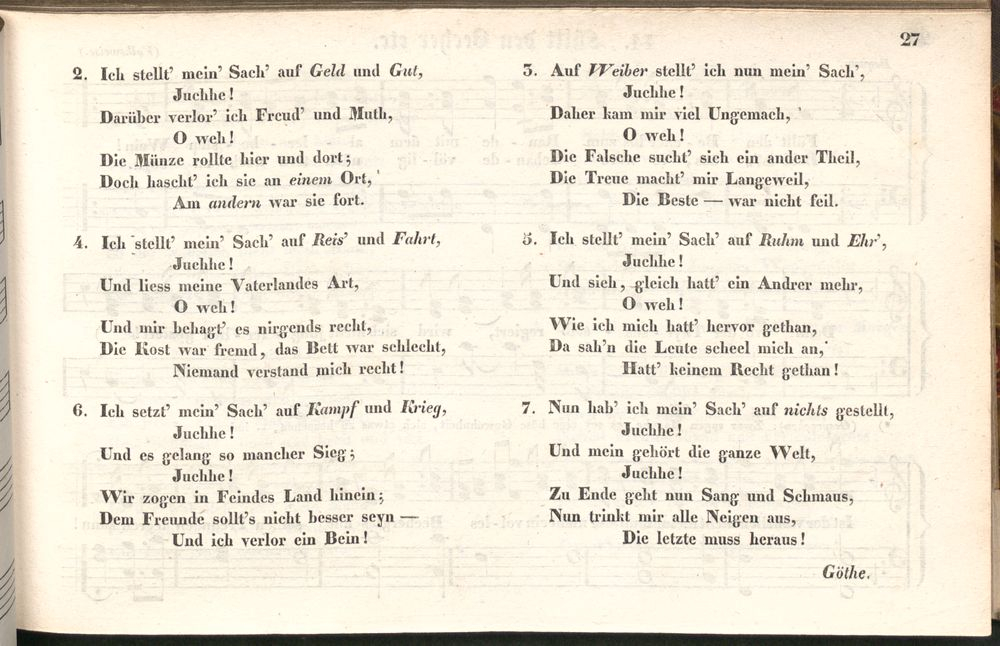 27
2. Ich stellt' mein' Sach' auf Geld und Gut,
Juchhe!
Darüber verlor' ich Freud' und Muth,
O weh!
Die Münze rollte hier und dort;
Doch hascht' ich sie an einem Ort,
Am andern war sie fort.
3. Auf Weiber stellt' ich nun mein' Sach',
Juchhe!
Daher kam mir viel Ungemach,
O weh!
Die Falsche sucht' sich ein ander Theil,
Die Treue macht' mir Langeweil,
Die Beste — war nicht feil.
4. Ich stellt' mein' Sach' auf Reis' und Fahrt,
Juchhe!
Und liess meine Vaterlandes Art,
O weh!
Und mir behagt' es nirgends recht,
Die Kost war fremd, das Bett war schlecht,
Niemand verstand mich recht!
5. Ich stellt' mein' Sach' auf Ruhm und Ehr',
Juchhe!
Und sieh, gleich hatt' ein Andrer mehr,
O weh!
Wie ich mich hatt' hervor gethan,
Da sah'n die Leute scheel mich an,
Hatt' keinem Recht gethan!
6. Ich setzt' mein' Sach' auf Kampf und Krieg,
Juchhe!
Und es gelang so mancher Sieg;
Juchhe!
Wir zogen in Feindes Land hinein;
Dem Freunde sollt's nicht besser seyn —
Und ich verlor ein Bein!
7. Nun hab' ich mein' Sach' auf nichts gestellt,
Juchhe!
Und mein gehört die ganze Welt,
Juchhe!
Zu Ende geht nun Sang und Schmaus,
Nun trinkt mir alle Neigen aus,
Die letzte muss heraus!
Göthe.